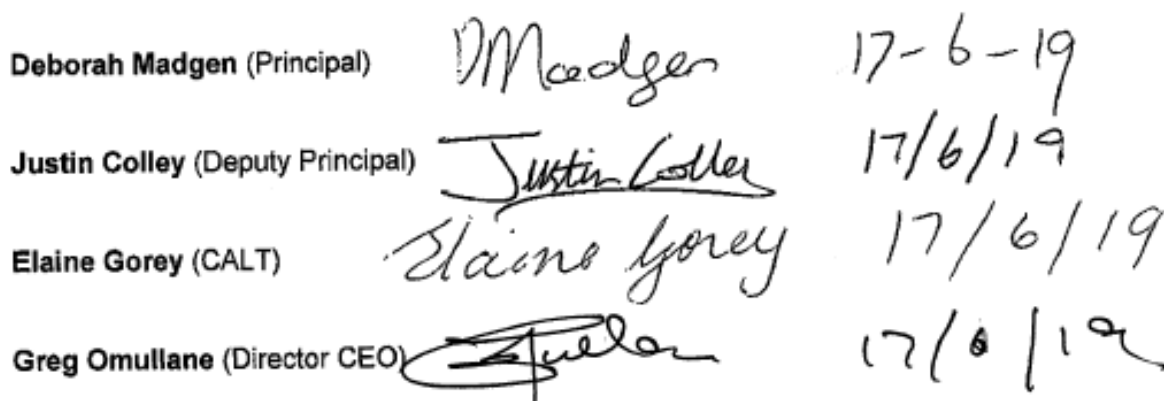 Deborah Madgen (Principal) DMadgen 17-6-19
Justin Colley (Deputy Principal) Justin Colley 17/6/19
Elaine Gorey (CALT) Elaine Gorey 17/6/19
Greg Omullane (Director CEO) 17/6/19